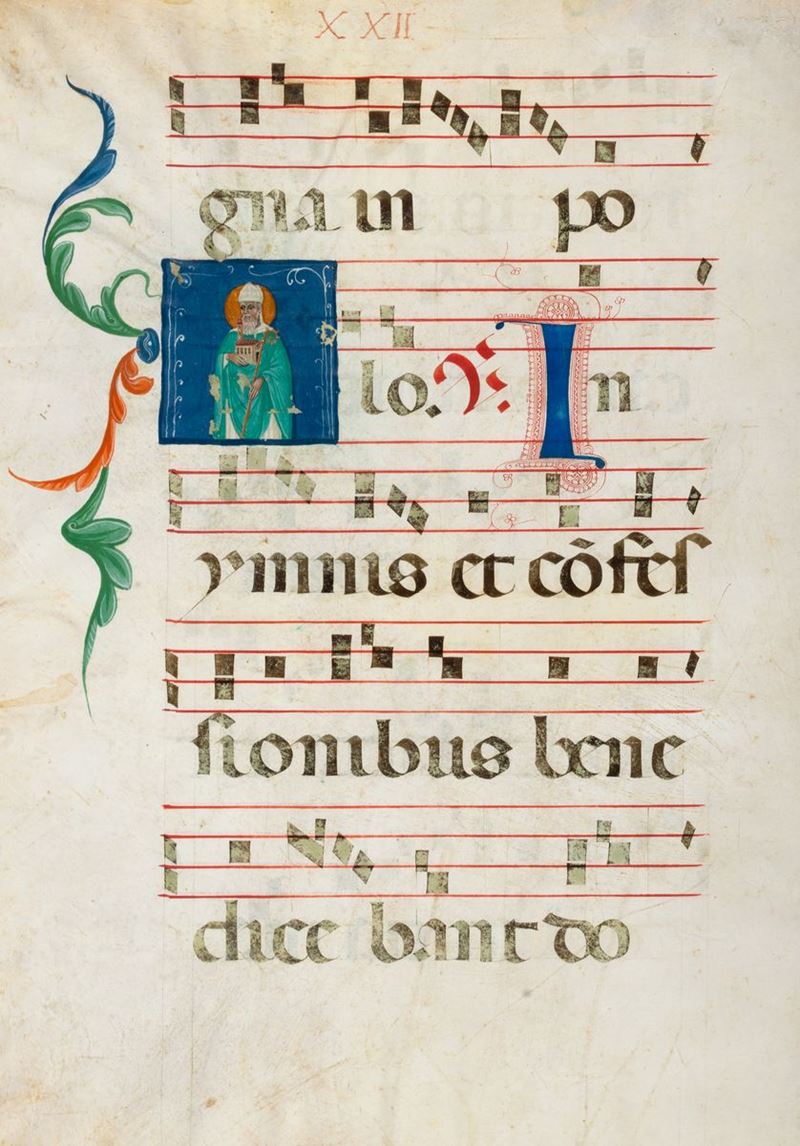 XXII
gna in po
lo. ℣. In
ymnis et cōfes
sionibus bene
dice bant do